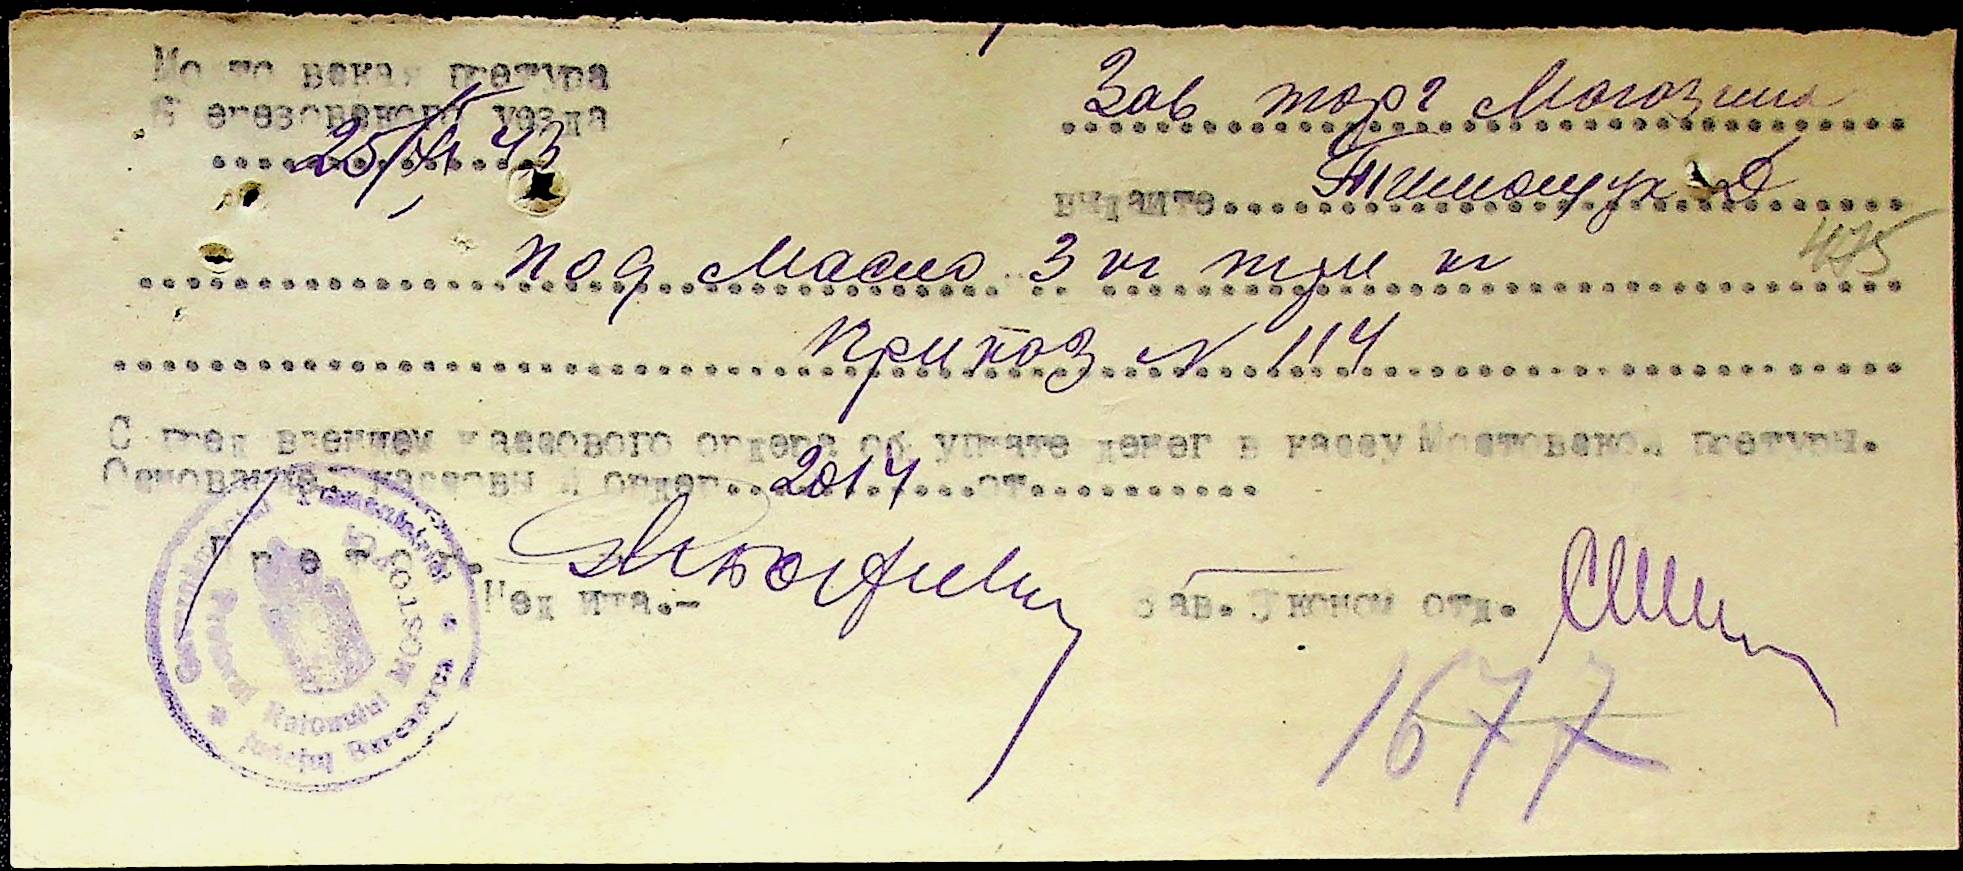 Мостовская претура
Березовского уезда
25/ 43
Зав торг Могозина
видайте Тимощук Д
475
под Масло 3 кг три кг
Приказ N 114
С пред влением кассового ордера об уплате денег в кассу Мостовской претуры.
Основание: кассовый ордер 2014 от
Претор.
Нед ита.-
Зав. Эконом отд.
1677
Guvernământul Transnistriei
Pretura Raionului MOSTOVOI
Județul Berezovca